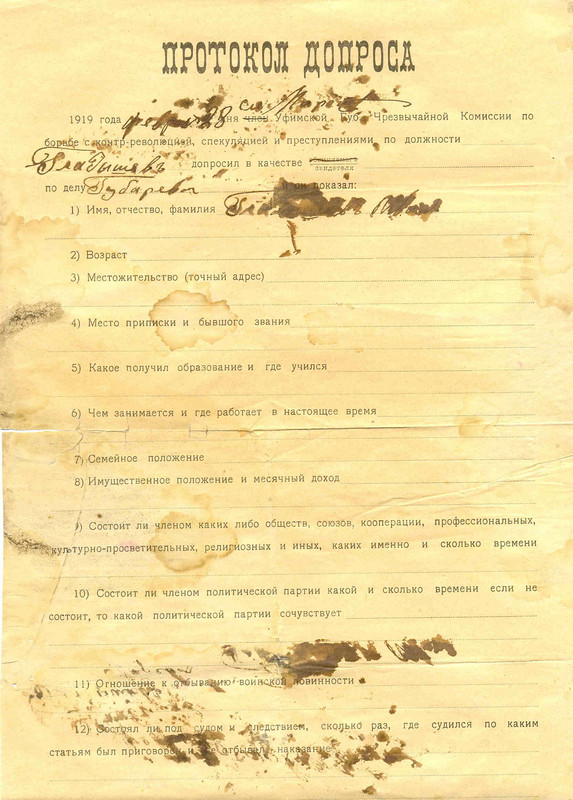 ПРОТОКОЛ ДОПРОСА
1919 года февраля 28 дня член Уфимской Губ. Чрезвычайной Комиссии по
борьбе с контр-революцией, спекуляцией и преступлениями по должности
Гладышевъ допросил в качестве
свидетеля
по делу Губарева и он показал:
1) Имя, отчество, фамилия
2) Возраст
3) Местожительство (точный адрес)
4) Место приписки и бывшого звания
5) Какое получил образование и где учился
6) Чем занимается и где работает в настоящее время
7) Семейное положение
8) Имущественное положение и месячный доход
9) Состоит ли членом каких либо обществ, союзов, кооперации, профессиональных,
культурно-просветительных, религиозных и иных, каких именно и сколько времени
10) Состоит ли членом политической партии какой и сколько времени если не
состоит, то какой политической партии сочувствует
11) Отношение к отбыванию воинской повинности
12) Состоял ли под судом и следствием, сколько раз, где судился по каким
статьям был приговорен и где отбывал наказание